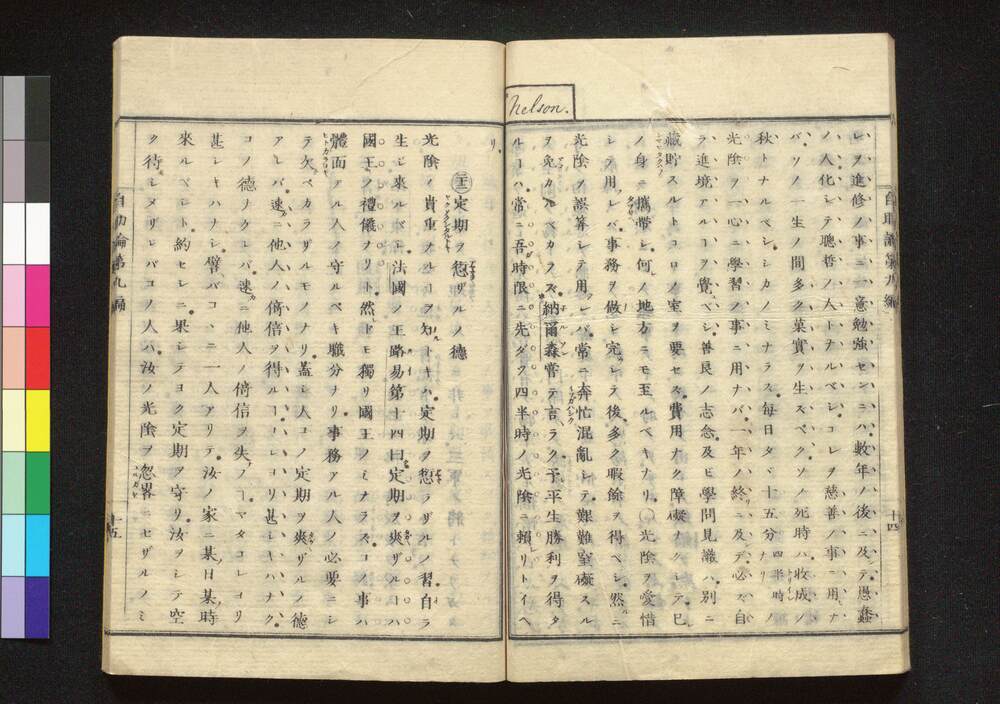 レヲ進修ノ事ニ一意勉強センニハ數年ノ後ニ及テ愚蠢
ノ人化シテ聰哲ノ人トナルベシコレヲ慈善ノ事ニ用ナ
バソノ一生ノ間多ク菓實ヲ生スベクソノ死時ハ收成ノ
秋トナルベシシカノミナラス毎日タヾ十五分四半時ナリノ
光陰ヲ一心ニ學習ノ事ニ用ナバ一年ノ終ニ及デ必ズ自
ラ進境アルヿヲ覺ベシ善良ノ志念及ビ學問見識ハ別ニ
藏貯スルトコロノ室ヲ要セス費用ナク障礙ナクシテ已
ノ身ニ攜帶シ何ノ地方ニモ至ルベキナリ〇光陰ヲ愛惜
シテ用レバ事務ヲ做シ完シテ後多ク暇餘ヲ得ベシ然ルニ
光陰ヲ誤算シテ用レバ常ニ奔忙混亂シテ艱難窒礙スル
ヲ免カルベカラス納爾森嘗テ言ラク予平生勝利ヲ得タ
ルヿハ常ニ吾時限ニ先ダツ四半時ノ光陰ニ賴リトイヘ
リ
Nelson.
定期ヲ愆ザルノ德
光陰ノ貴重ナルヿヲ知トキハ定期ヲ愆ラザルノ習自ラ
生シ來ルベシ法國ノ王路易第十四曰定期ヲ爽ザルヿハ
國王ノ禮儀ナリト然ドモ獨リ國王ノミナラスコノ事ハ
體面アル人ノ守ルベキ職分ナリ事務アル人ノ必要ニシ
テ欠ベカラザルモノナリ蓋シ人コノ定期ヲ爽ザルノ德
アレバ速ニ他人ノ倚信ヲ得ルヿコレヨリ甚シキハナク
コノ德ナクレバ速ニ他人ノ倚信ヲ失フヿマタコレヨリ
甚シキハナシ譬バコヽニ一人アリテ汝ノ家ニ某日某時
來ルベシト約セシニ果シテヨク定期ヲ守リ汝ヲシテ空
ク待シメザレバコノ人ハ汝ノ光陰ヲ忽畧ニセザルノミ
自助論第九編
十五